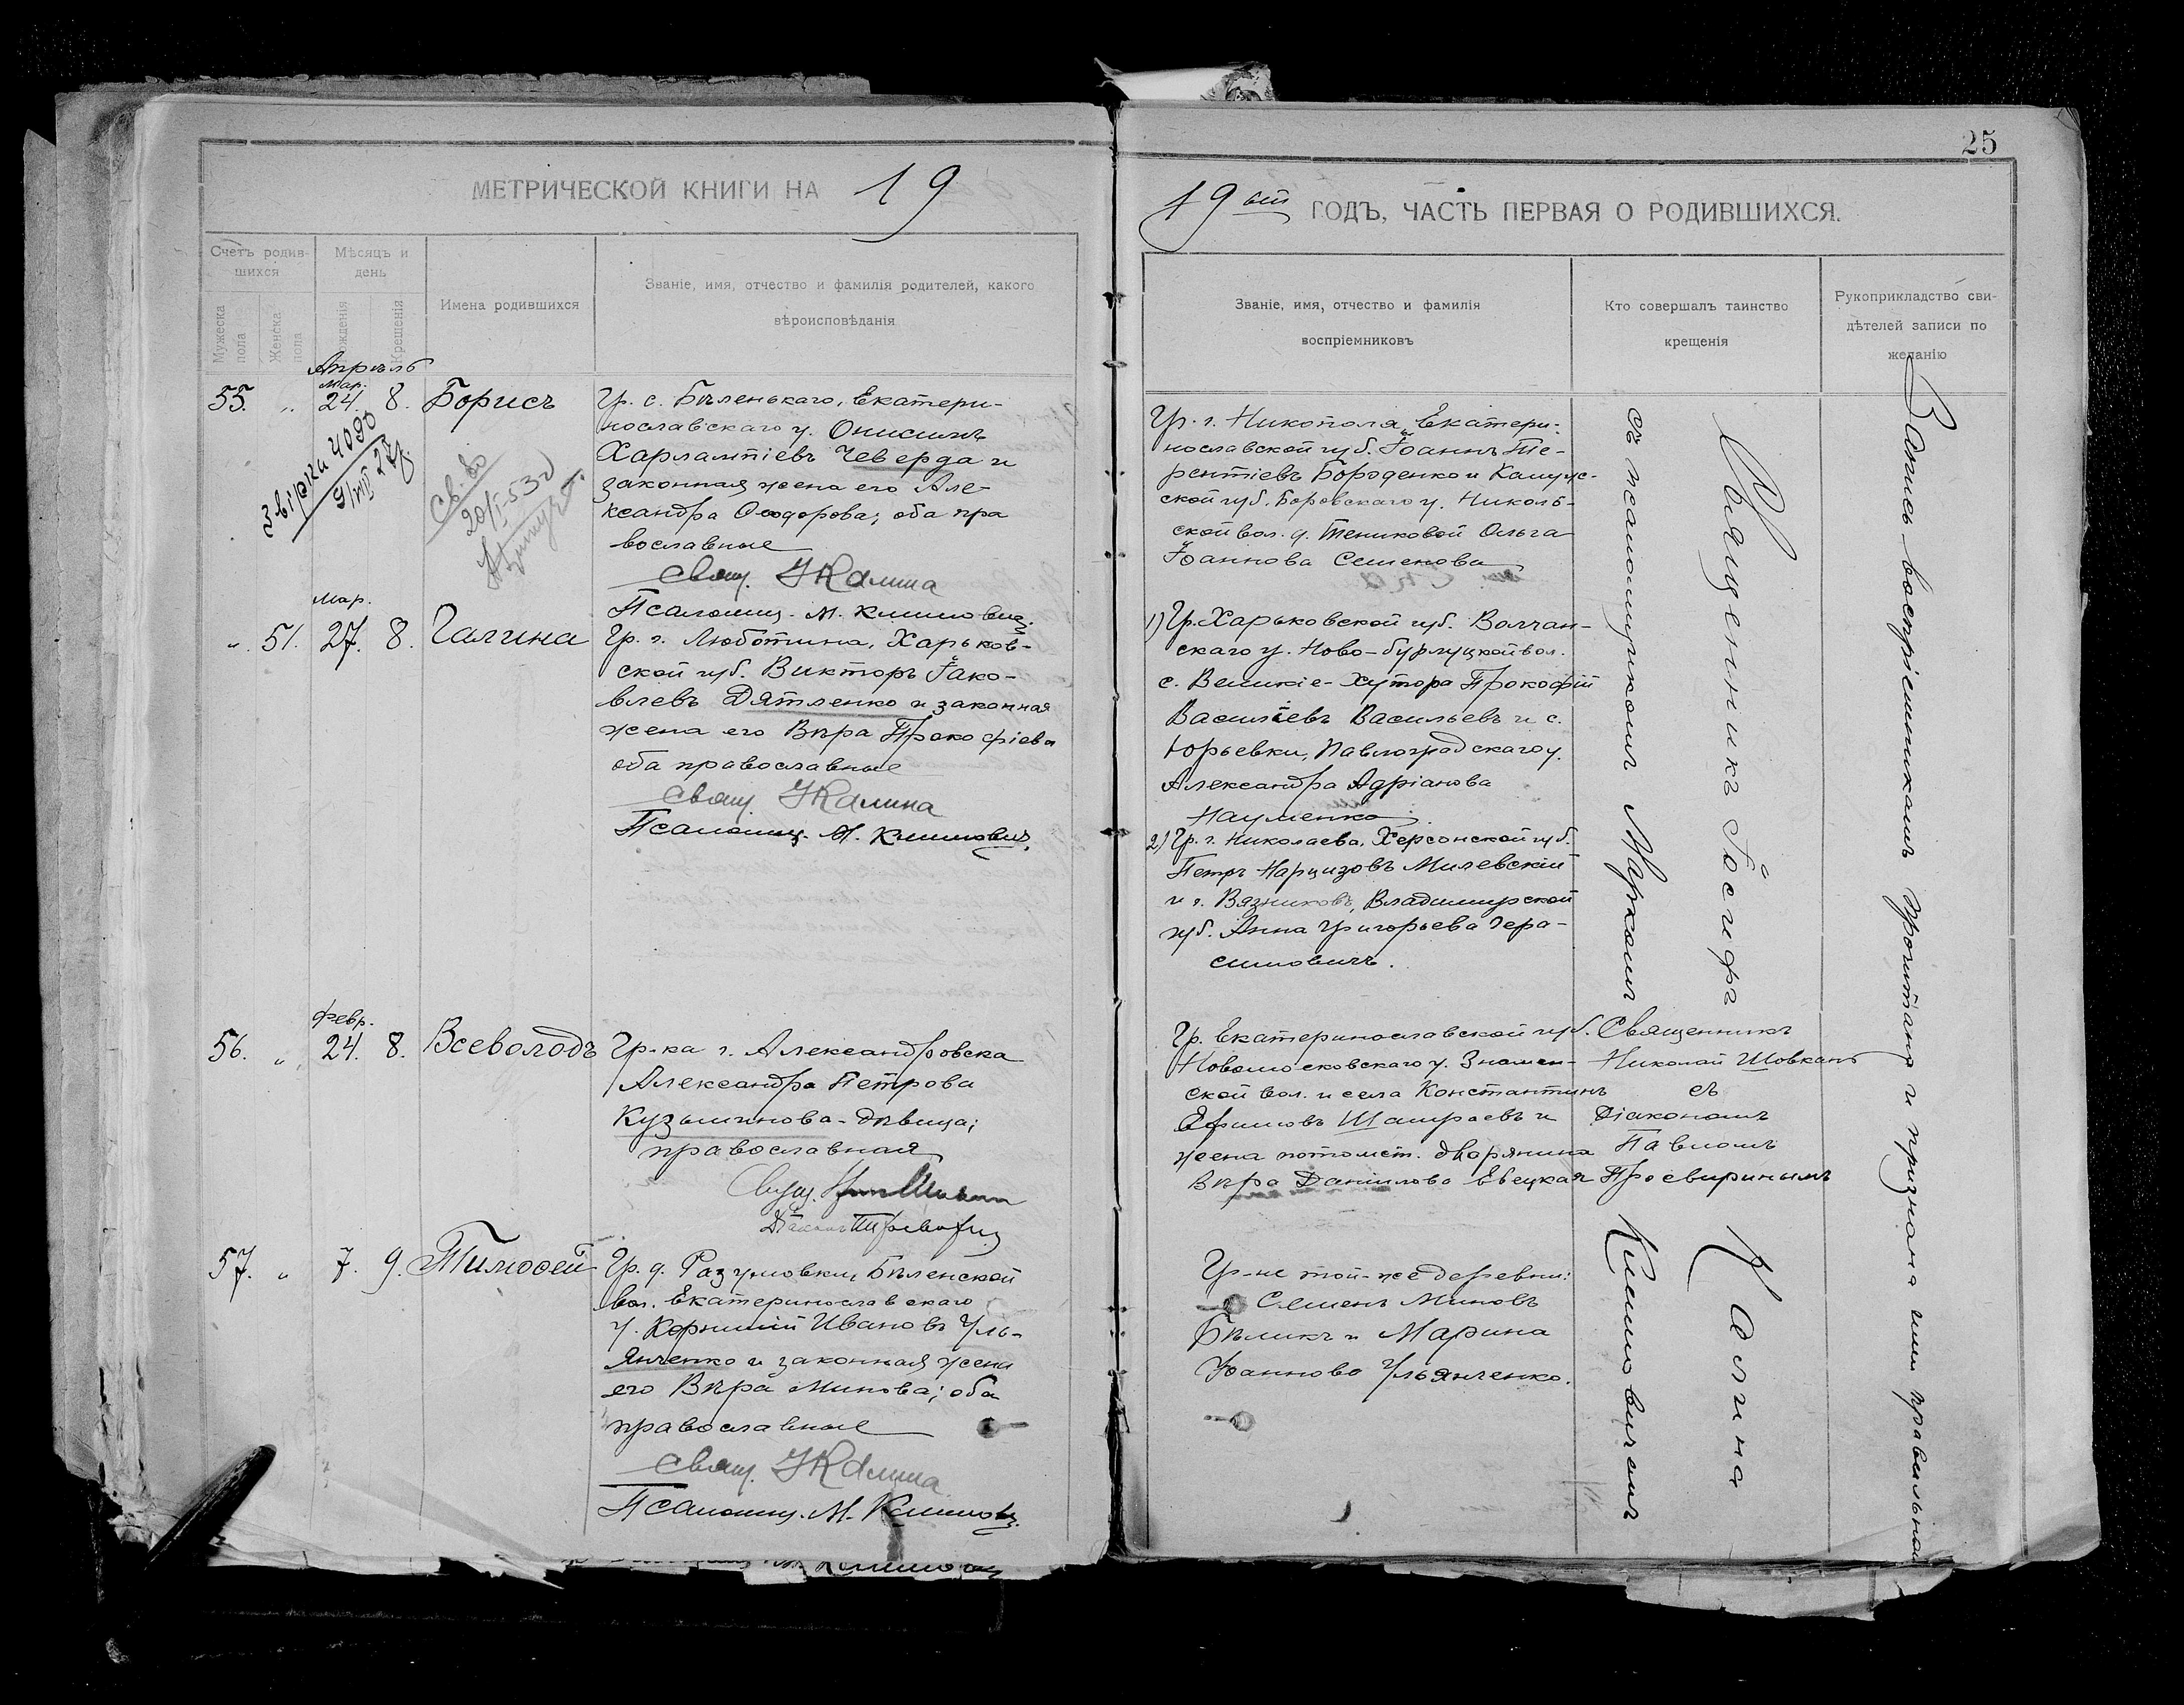 25
МЕТРИЧЕСКОЙ КНИГИ НА 19
19 ый ГОДЪ, ЧАСТЬ ПЕРВАЯ О РОДИВШИХСЯ.
Счетъ родив-
шихся
Мужеска пола
Женска пола
Мѣсяцъ и
день
Рожденія
Крещенія
Имена родившихся
Званіе, имя, отчество и фамилія родителей, какого
вѣроисповѣданія
Званіе, имя, отчество и фамилія
воспріемниковъ
Кто совершалъ таинство
крещенія
Рукоприкладство сви-
дѣтелей записи по
желанію
Апрѣль
Мар.
55. „ 24. 8. Борисъ
Звірка 4090
9/VIII 27 г.
Св-во
20/I-53г
Гр. с. Бѣленькаго, Екатери-
нославскаго у. Онисимъ
Харлампіевъ Чеверда и
законная жена его Але-
ксандра Ѳеодорова; оба пра
вославные
Свящ. І Калина
Псаломщ. М. Климович.
Гр. г. Никополя, Екатери-
нославской губ. Іоаннъ Те-
рентіевъ Бороденко и Калуж-
ской губ. Боровскаго у. Николь-
ской вол. д. Тениковой Ольга
Іоаннова Семенова
Мар.
„ 51. 27. 8. Галина
Гр. г. Люботина, Харьков-
ской губ. Викторъ Іако-
влевъ Дятленко и законная
жена его Вѣра Прокофіева
оба православные
Свящ. І Калина
Псаломщ. М. Климович.
1) Гр. Харьковской губ. Волчан-
скаго у. Ново-бурлуцкой вол.
с. Великіе-Хутора Прокофій
Василіевъ Васильевъ и с.
Юрьевки, Павлоградскаго у.
Александра Адріанова
Науменко.
2) Гр. г. Николаева, Херсонской губ.
Петръ Нарцизовъ Милевскій
и г. Вязниковъ, Владимирской
губ. Анна Григорьева Гера-
симовичъ.
Февр.
56. „ 24. 8. Всеволодъ
Гр-ка г. Александровска
Александра Петрова
Кузьминова-дѣвица;
православная
Свящ.
Гр. Екатеринославской губ.
Новомосковскаго у. Знамен-
ской вол. и села Константинъ
Ефимовъ Шамраевъ и
жена потомст. дворянина
Вѣра Даниилова Евецкая
Священникъ
Николай Шовканъ
съ
Діакономъ
Павломъ
Просвиринымъ
57. „ 7. 9. Тимоѳей
Гр. д. Разумовки, Бѣленской
вол. Екатеринославскаго
у. Корнилій Ивановъ Уль-
янченко и законная жена
его Вѣра Минова; оба
православные
Свящ. І Калина
Псаломщ. М. Климович.
Гр-не той-же деревни:
Семенъ Миновъ
Бѣликъ и Марина
Іоаннова Ульянченко.
Священникъ Іосифъ Калина
съ псаломщикомъ Маркомъ Климовичемъ
Запись воспріемникамъ прочитана и признана ими правильной